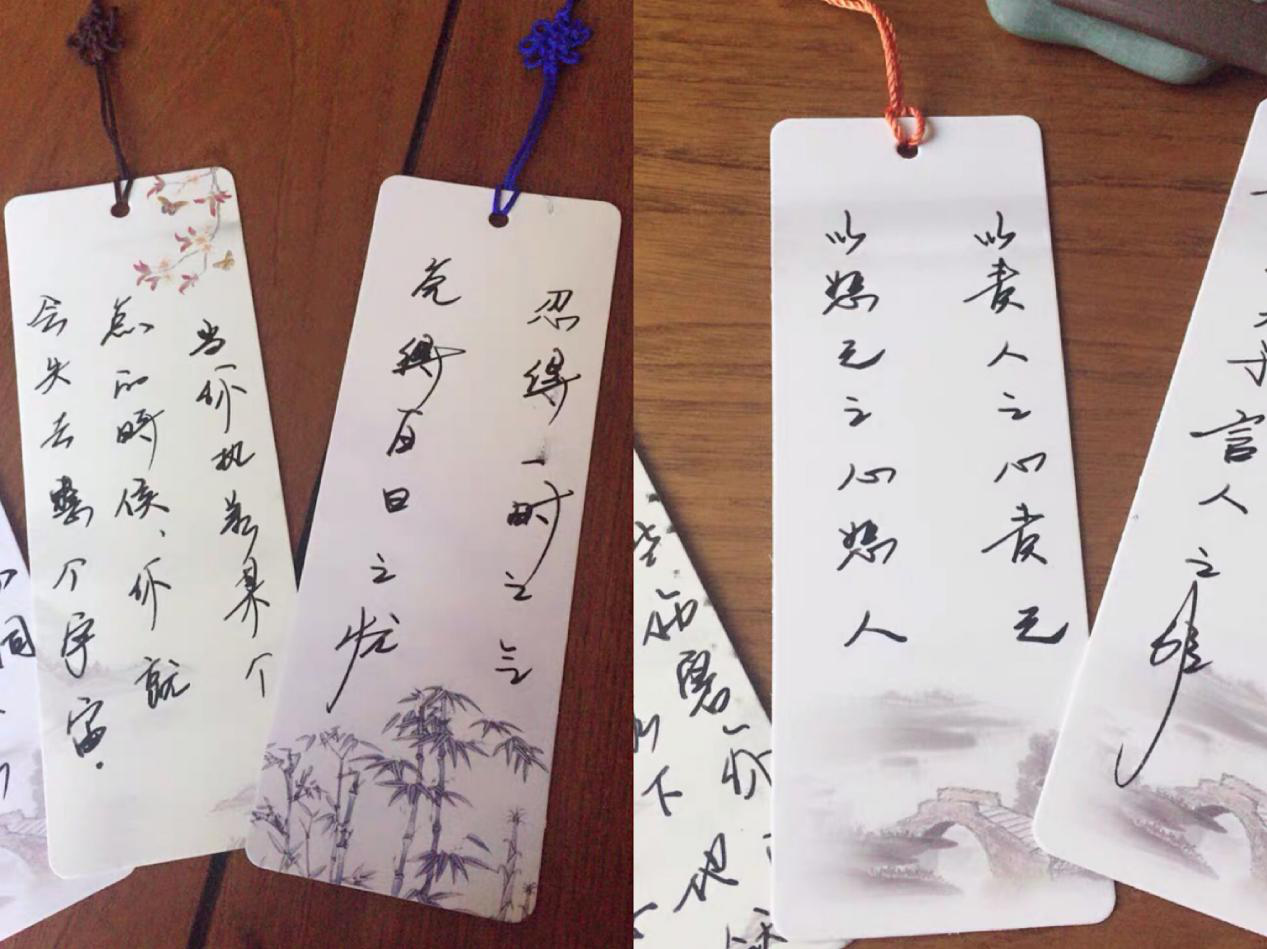 当你执着某个
点的時候、你就
会失去整个宇宙.
忍得一时之气
免得百日之忧
以责人之心责己
以恕己之心恕人
言人之